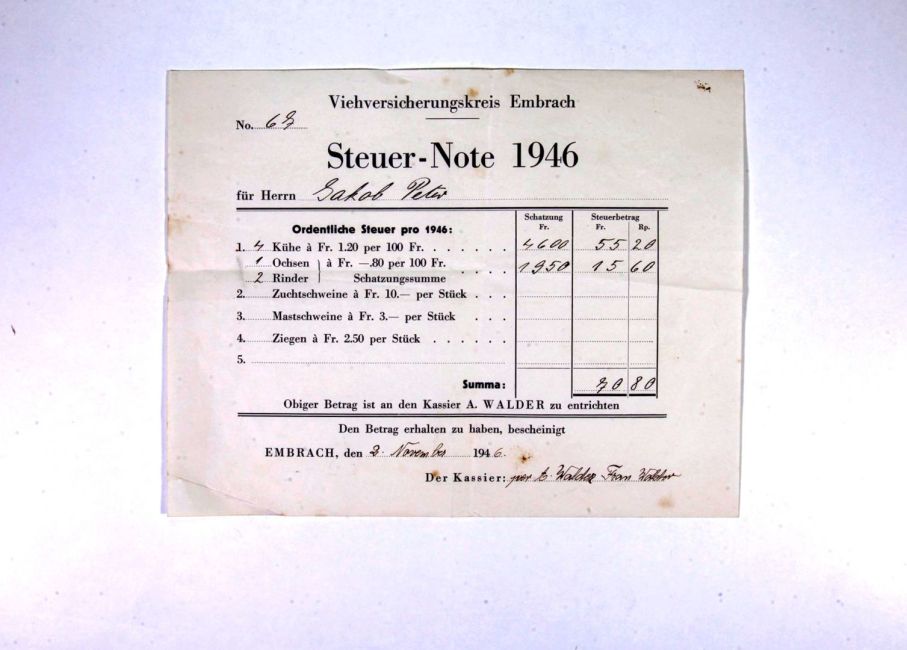 Viehversicherungskreis Embrach
No. 67
Steuer-Note 1946
für Herrn Jakob Peter
Schatzung Steuerbetrag
Ordentliche Steuer pro 1946: Fr. Fr. Rp.
1. 4 Kühe à Fr. 1.20 per 100 Fr. 4600 55 20
1 Ochsen } à Fr. —.80 per 100 Fr. 1950 15 60
2 Rinder } Schatzungssumme
2. Zuchtschweine à Fr. 10.— per Stück
3. Mastschweine à Fr. 3.— per Stück
4. Ziegen à Fr. 2.50 per Stück
5.
Summa: 70 80
Obiger Betrag ist an den Kassier A. WALDER zu entrichten
Den Betrag erhalten zu haben, bescheinigt
EMBRACH, den 2. November 1946.
Der Kassier: per A. Walder Frau Walder